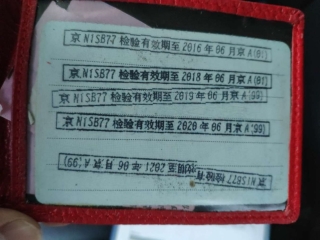 京 N1SB77 检验有效期至 2016 年 06 月京 A(01)
京 N1SB77 检验有效期至 2018 年 06 月京 A(01)
京 N1SB77 检验有效期至 2019 年 06 月京 A(99)
京 N1SB77 检验有效期至 2020 年 06 月京 A(99)
京 N1SB77 检验有效期至 2021 年 06 月京 A(99)